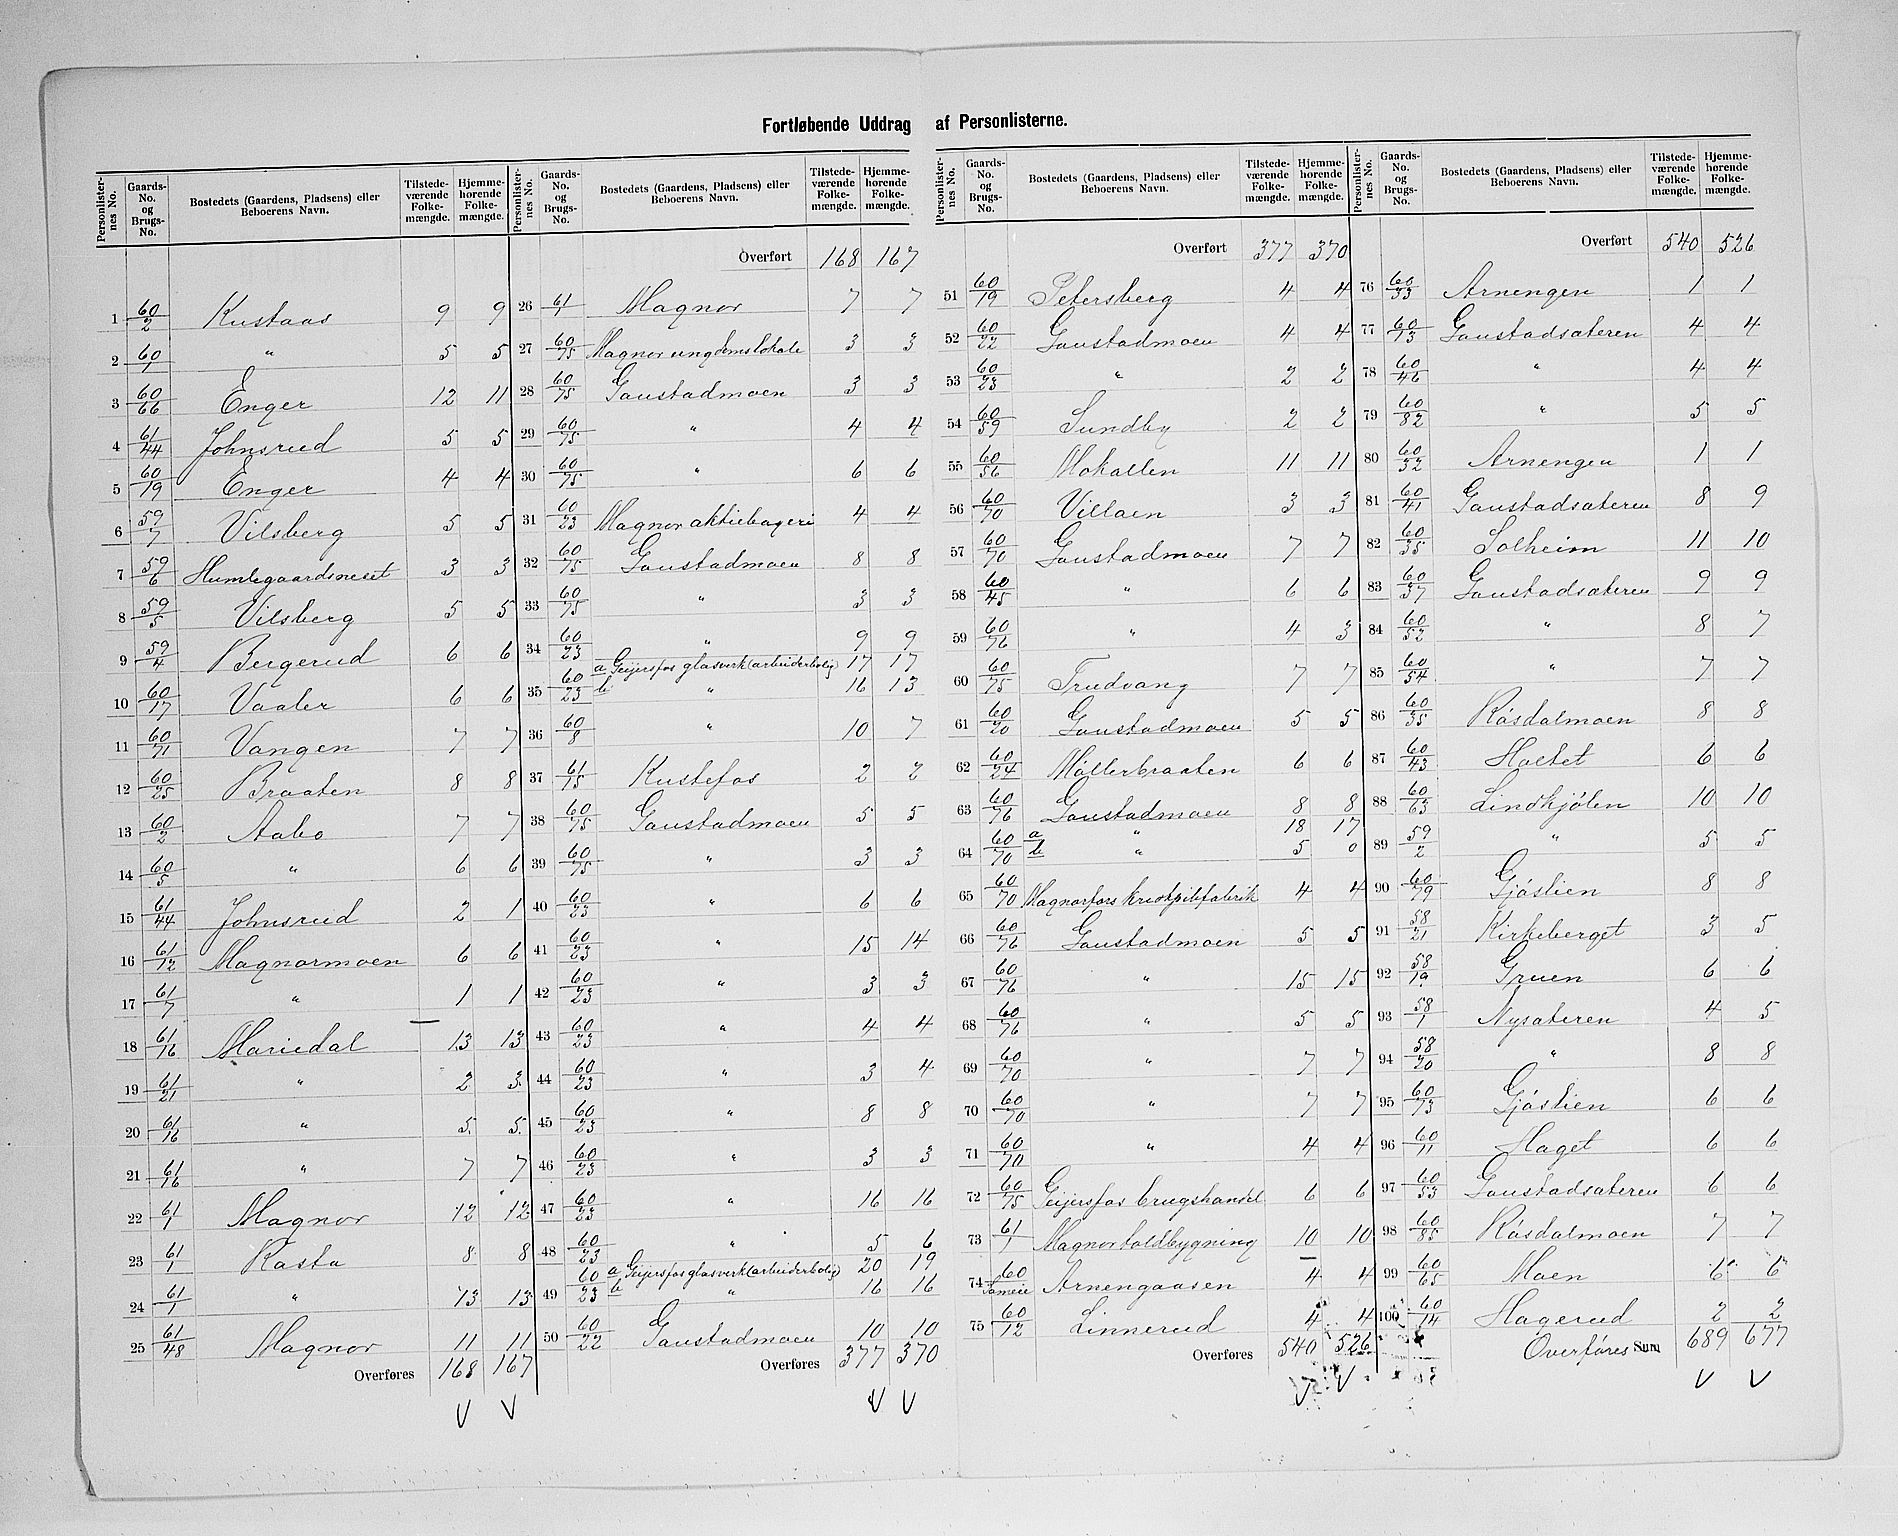 Fortløbende Uddrag af Personlisterne.
Personlister-nes No. Gaards-No. og Brugs-No. Bostedets (Gaardens, Pladsens) eller Beboerens Navn. Tilstede-værende Folke-mængde. Hjemme-hørende Folke-mængde.
1 60/2 Kustaas 9 9
2 60/1 " 5 5
3 60/66 Enger 12 11
4 61/44 Johnsrud 5 5
5 60/19 Enger 4 4
6 59/7 Vilsberg 5 5
7 59/6 Humlegaardsneset 3 3
8 59/5 Vilsberg 5 5
9 59/4 Bergerud 6 6
10 60/17 Vaaler 6 6
11 60/71 Vangen 7 7
12 60/25 Braaten 8 8
13 60/2 Aabo 7 7
14 60/5 " 6 6
15 61/44 Johnsrud 2 1
16 61/12 Magnormoen 6 6
17 61/7 " 1 1
18 61/16 Mariedal 13 13
19 61/21 " 2 3
20 61/16 " 5 5
21 61/16 " 7 7
22 61/1 Magnor 12 12
23 61/1 Rasta 8 8
24 61/1 " 13 13
25 61/48 Magnor 11 11
Overføres 168 167
V V
Personlister-nes No. Gaards-No. og Brugs-No. Bostedets (Gaardens, Pladsens) eller Beboerens Navn. Tilstede-værende Folke-mængde. Hjemme-hørende Folke-mængde.
Overført 168 167
26 61/1 Magnor 7 7
27 60/75 Magnor ungdomslokale 3 3
28 60/75 Gaustadmoen 3 3
29 60/75 " 4 4
30 60/75 " 6 6
31 60/23 Magnor aktiebageri 4 4
32 60/75 Gaustadmoen 8 8
33 60/75 " 3 3
34 60/23 " 9 9
a Geijersfos glasverk (arbeiderbolig) 17 17
35 60/23 b " 16 13
36 60/8 " 10 7
37 61/15 Kustefos 2 2
38 60/75 Gaustadmoen 5 5
39 60/75 " 3 3
40 60/23 " 6 6
41 60/23 " 15 14
42 60/23 " 3 3
43 60/23 " 4 4
44 60/23 " 3 4
45 60/23 " 8 8
46 60/23 " 3 3
47 60/23 " 16 16
48 60/23 " 5 6
a Geijersfos glasverk (arbeiderbolig) 20 19
49 60/23 b " 16 16
50 60/22 Gaustadmoen 10 10
Overføres 377 370
V V
Personlister-nes No. Gaards-No. og Brugs-No. Bostedets (Gaardens, Pladsens) eller Beboerens Navn. Tilstede-værende Folke-mængde. Hjemme-hørende Folke-mængde.
Overført 377 370
51 60/19 Petersberg 4 4
52 60/22 Gaustadmoen 4 4
53 60/23 " 2 2
54 60/59 Sundby 2 2
55 60/56 Mohallen 11 11
56 60/70 Villaen 3 3
57 60/70 Gaustadmoen 7 7
58 60/45 " 6 6
59 60/76 " 4 3
60 60/75 Trudvang 7 7
61 60/20 Gaustadmoen 5 5
62 60/24 Möllerbraaten 6 6
63 60/76 Gaustadmoen 8 8
a " 18 17
64 60/70 b " 5 0
65 60/70 Magnorfors kridtpibfabrik 4 4
66 60/76 Gaustadmoen 5 5
67 60/76 " 15 15
68 60/76 " 5 5
69 60/70 " 7 7
70 60/70 " 7 7
71 60/70 " 4 4
72 60/75 Geijersfos brugshandel 6 6
73 61/1 Magnor toldbygning 10 10
74 60/Sameie Arnengaasen 4 4
75 60/12 Linnerud 4 4
Overføres 540 526
V V
Personlister-nes No. Gaards-No. og Brugs-No. Bostedets (Gaardens, Pladsens) eller Beboerens Navn. Tilstede-værende Folke-mængde. Hjemme-hørende Folke-mængde.
Overført 540 526
76 60/33 Arnengen 1 1
77 60/13 Gaustadsæteren 4 4
78 60/46 " 4 4
79 60/82 " 5 5
80 60/32 Arnengen 1 1
81 60/41 Gaustadsæteren 8 9
82 60/35 Solheim 11 10
83 60/37 Gaustadsæteren 9 9
84 60/52 " 8 7
85 60/54 " 7 7
86 60/35 Räsdalmoen 8 8
87 60/43 Holtet 6 6
88 60/63 Lindkjölen 10 10
89 59/2 " 5 5
90 60/79 Gjöslien 8 8
91 58/21 Kirkeberget 3 5
92 58/19 Gruen 6 6
93 58/1 Nysæteren 4 5
94 58/20 " 8 8
95 60/73 Gjöslien 6 6
96 60/11 Haget 6 6
97 60/53 Gaustadsæteren 6 6
98 60/85 Räsdalmoen 7 7
99 60/65 Moen 6 6
100 60/14 Hagerud 2 2
Overføres Sum 689 677
V V